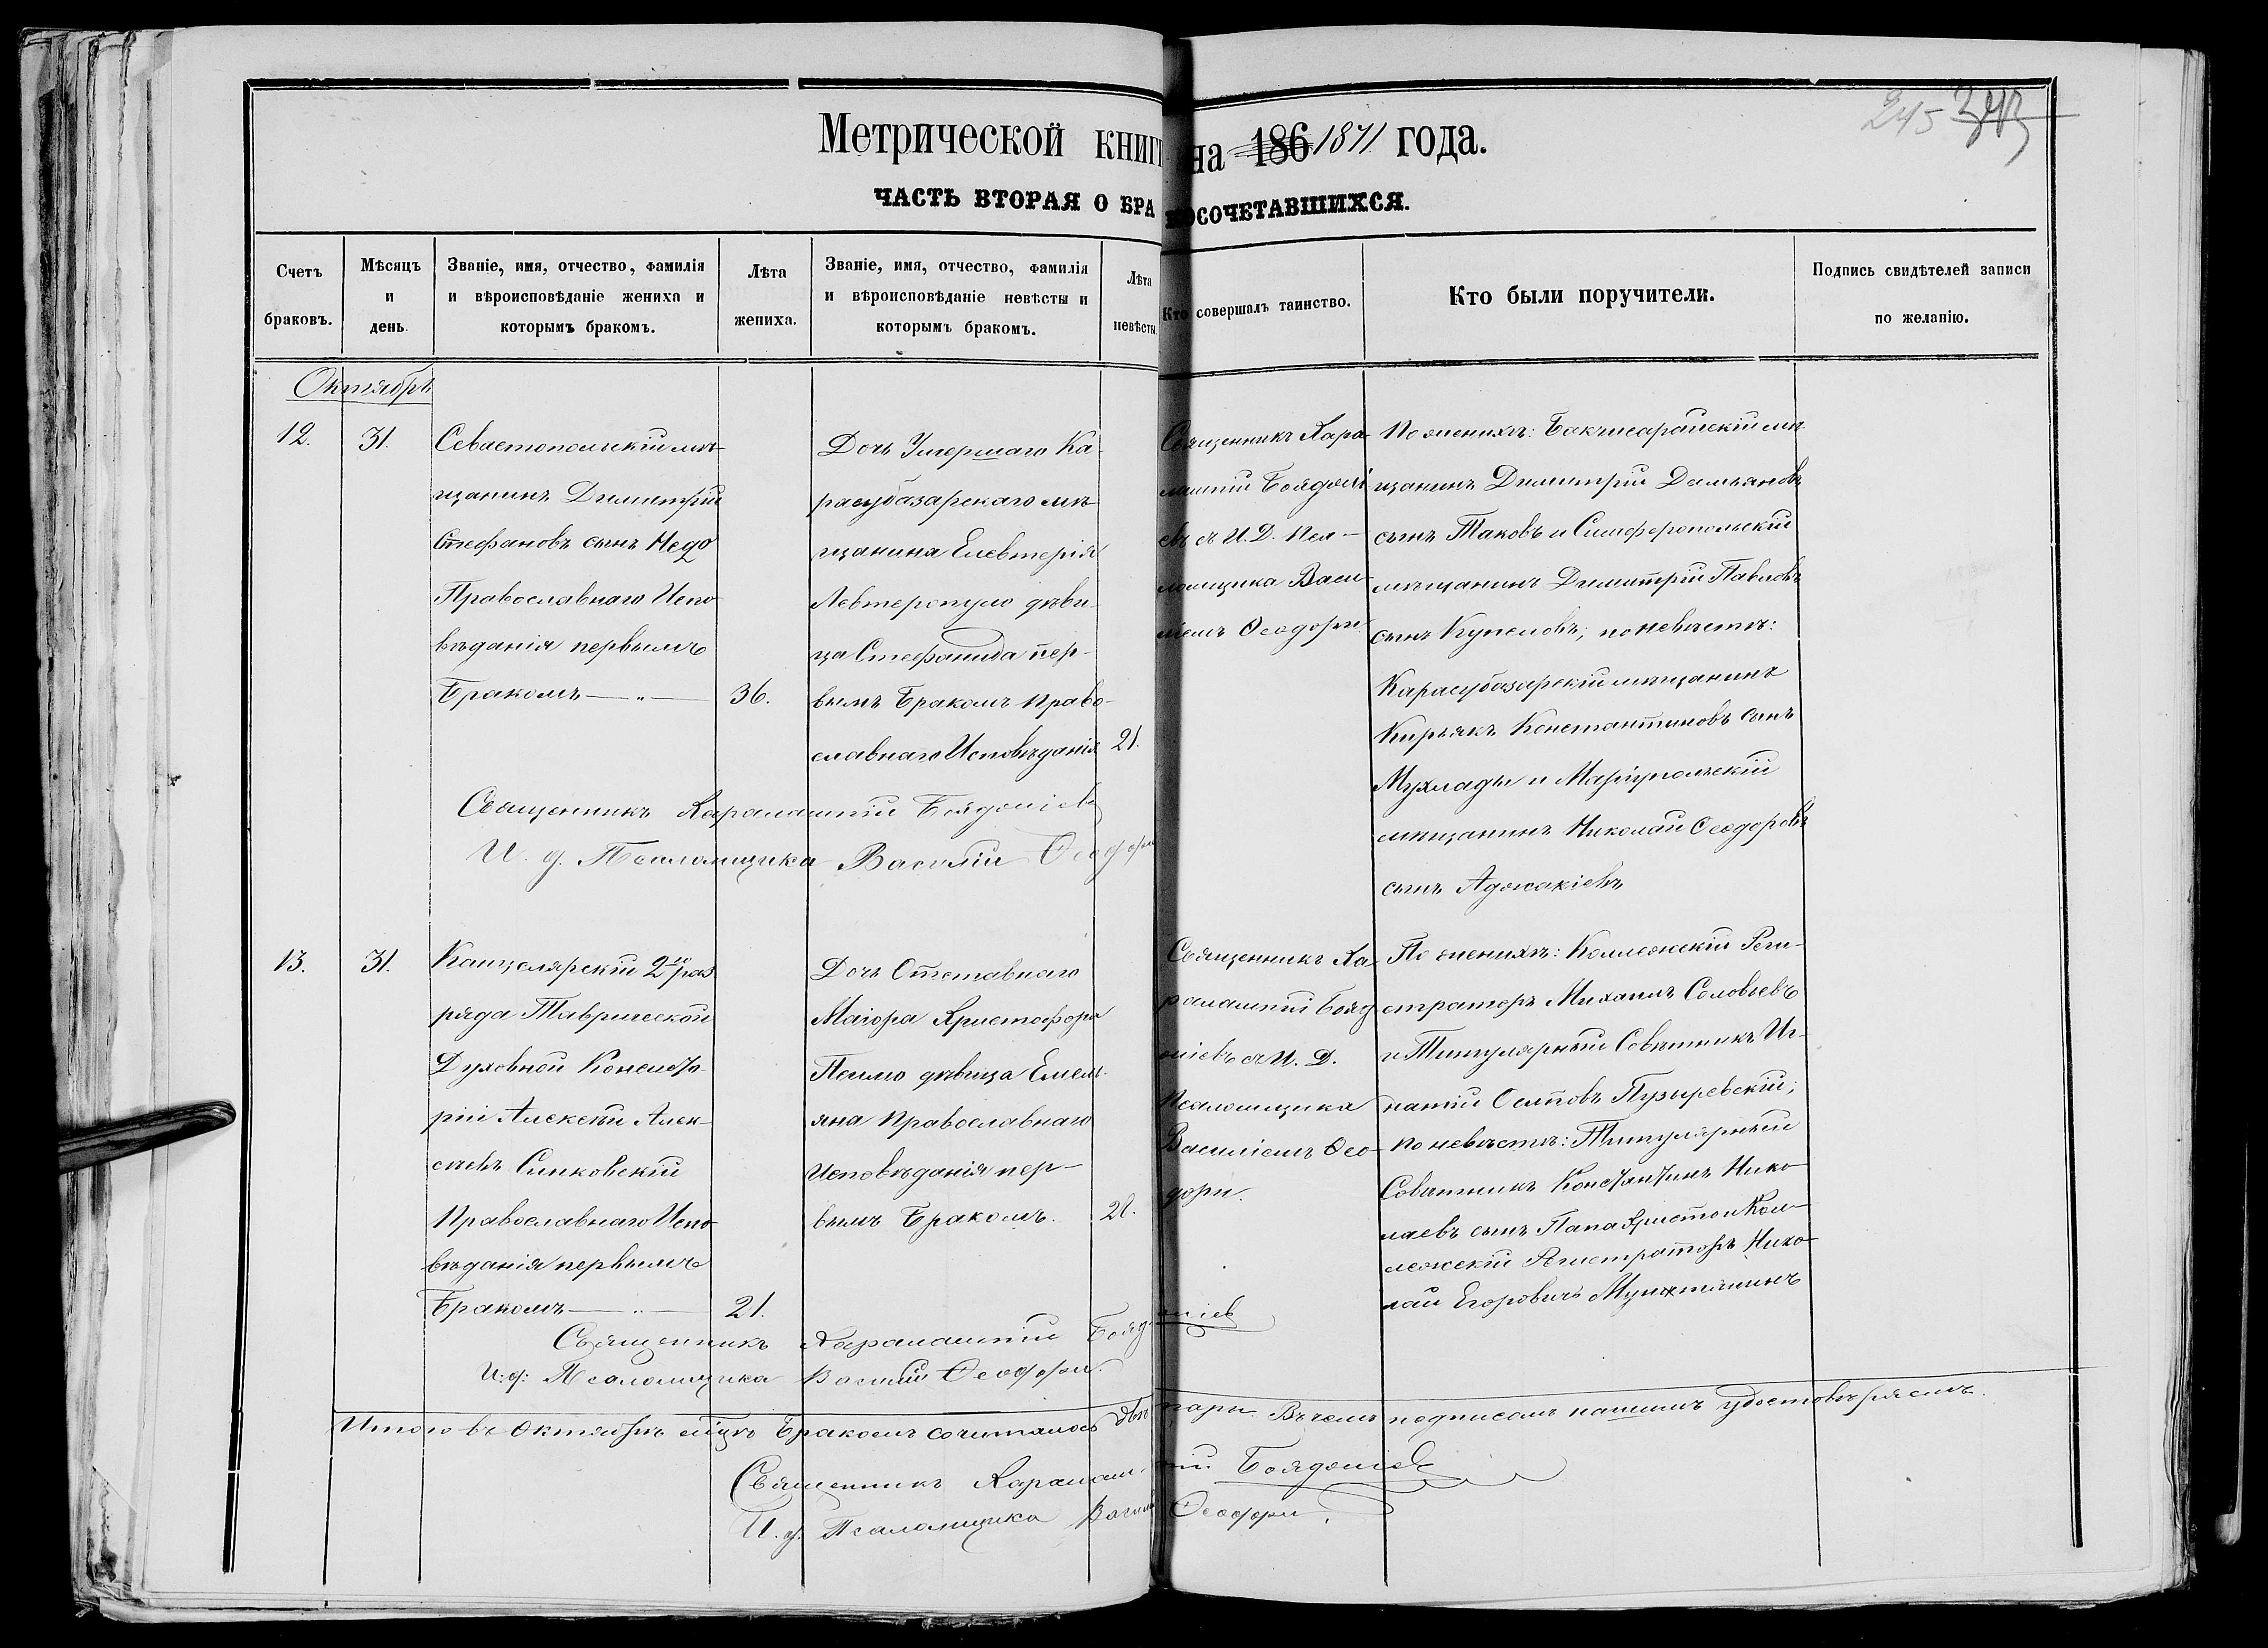 245
Метрической книг на 186 1871 года.
ЧАСТЬ ВТОРАЯ О БРАКОСОЧЕТАВШИХСЯ.
Счетъ
браковъ.
Мѣсяцъ
и
день.
Званіе, имя, отчество, фамилія
и вѣроисповѣданіе жениха и
которымъ бракомъ.
Лѣта
жениха.
Званіе, имя, отчество, фамилія
и вѣроисповѣданіе невѣсты и
которымъ бракомъ.
Лѣта
невѣсты.
Кто совершалъ таинство.
Кто были поручители.
Подпись свидѣтелей записи
по желанію.
Октябрь
12.
31.
Севастопольскій мѣ-
щанинъ Димитрій
Стефановъ сынъ Недо
Православнаго Испо-
вѣданія первымъ
Бракомъ — „ —
36.
Дочь Умершаго Ка-
расубазарскаго мѣ-
щанина Елевтерія
Левтеропуло дѣви-
ца Стефанида пер-
вымъ Бракомъ Право-
славнаго Исповѣданія
21.
Священникъ Хара-
лампій Бояджі
евъ съ И. Д. Пса-
ломщика Васи-
ліемъ Ѳеодори
По женихѣ: Бакчисарайскій мѣ-
щанинъ Димитрій Дамьяновъ
сынъ Таковъ и Симферопольскій
мѣщанинъ Димитрій Павловъ
сынъ Купеловъ; по невѣстѣ:
Карасубазарскій мѣщанинъ
Кирьякъ Константиновъ сынъ
Мухлады и Маріупольскій
мѣщанинъ Николай Ѳеодоровъ
сынъ Аджакіевъ
Священникъ Харалампій Бояджіевъ
И. д. Псаломщика Василій Ѳеодори
13.
31.
Канцелярскій 2го раз
ряда Таврической
Духовной Консисто-
ріи Алексѣй Алек-
сѣевъ Синковскій
Православнаго Испо-
вѣданія первымъ
Бракомъ — „ —
21.
Дочь Отставнаго
Маіора Христофора
Псимо дѣвица Емель-
яна Православнаго
Исповѣданія пер-
вымъ Бракомъ.
21.
Священникъ Ха-
ралампій Бояд
жіевъ съ И. Д.
Псаломщика
Василіемъ Ѳео-
дори.
По женихѣ: Коллежскій Реги-
страторъ Михаилъ Соловьевъ
и Титулярный Совѣтникъ Иг-
натій Осиповъ Пузыревскій;
по невѣстѣ: Титулярный
Совѣтникъ Константинъ Нико-
лаевъ сынъ Папа Христо и Кол-
лежскій Регистраторъ Нико-
лай Егоровичъ
Священникъ Харалампій Бояджіев
И. д. Псаломщика Василій Ѳеодори.
Итого въ Октябрѣ мѣсцѣ Бракомъ сочиталось двѣ пары. Въ чемъ подписомъ нашимъ удостовѣряемъ.
Священникъ Харалампій Бояджіев
И. д. Псаломщика Василій Ѳеодори.